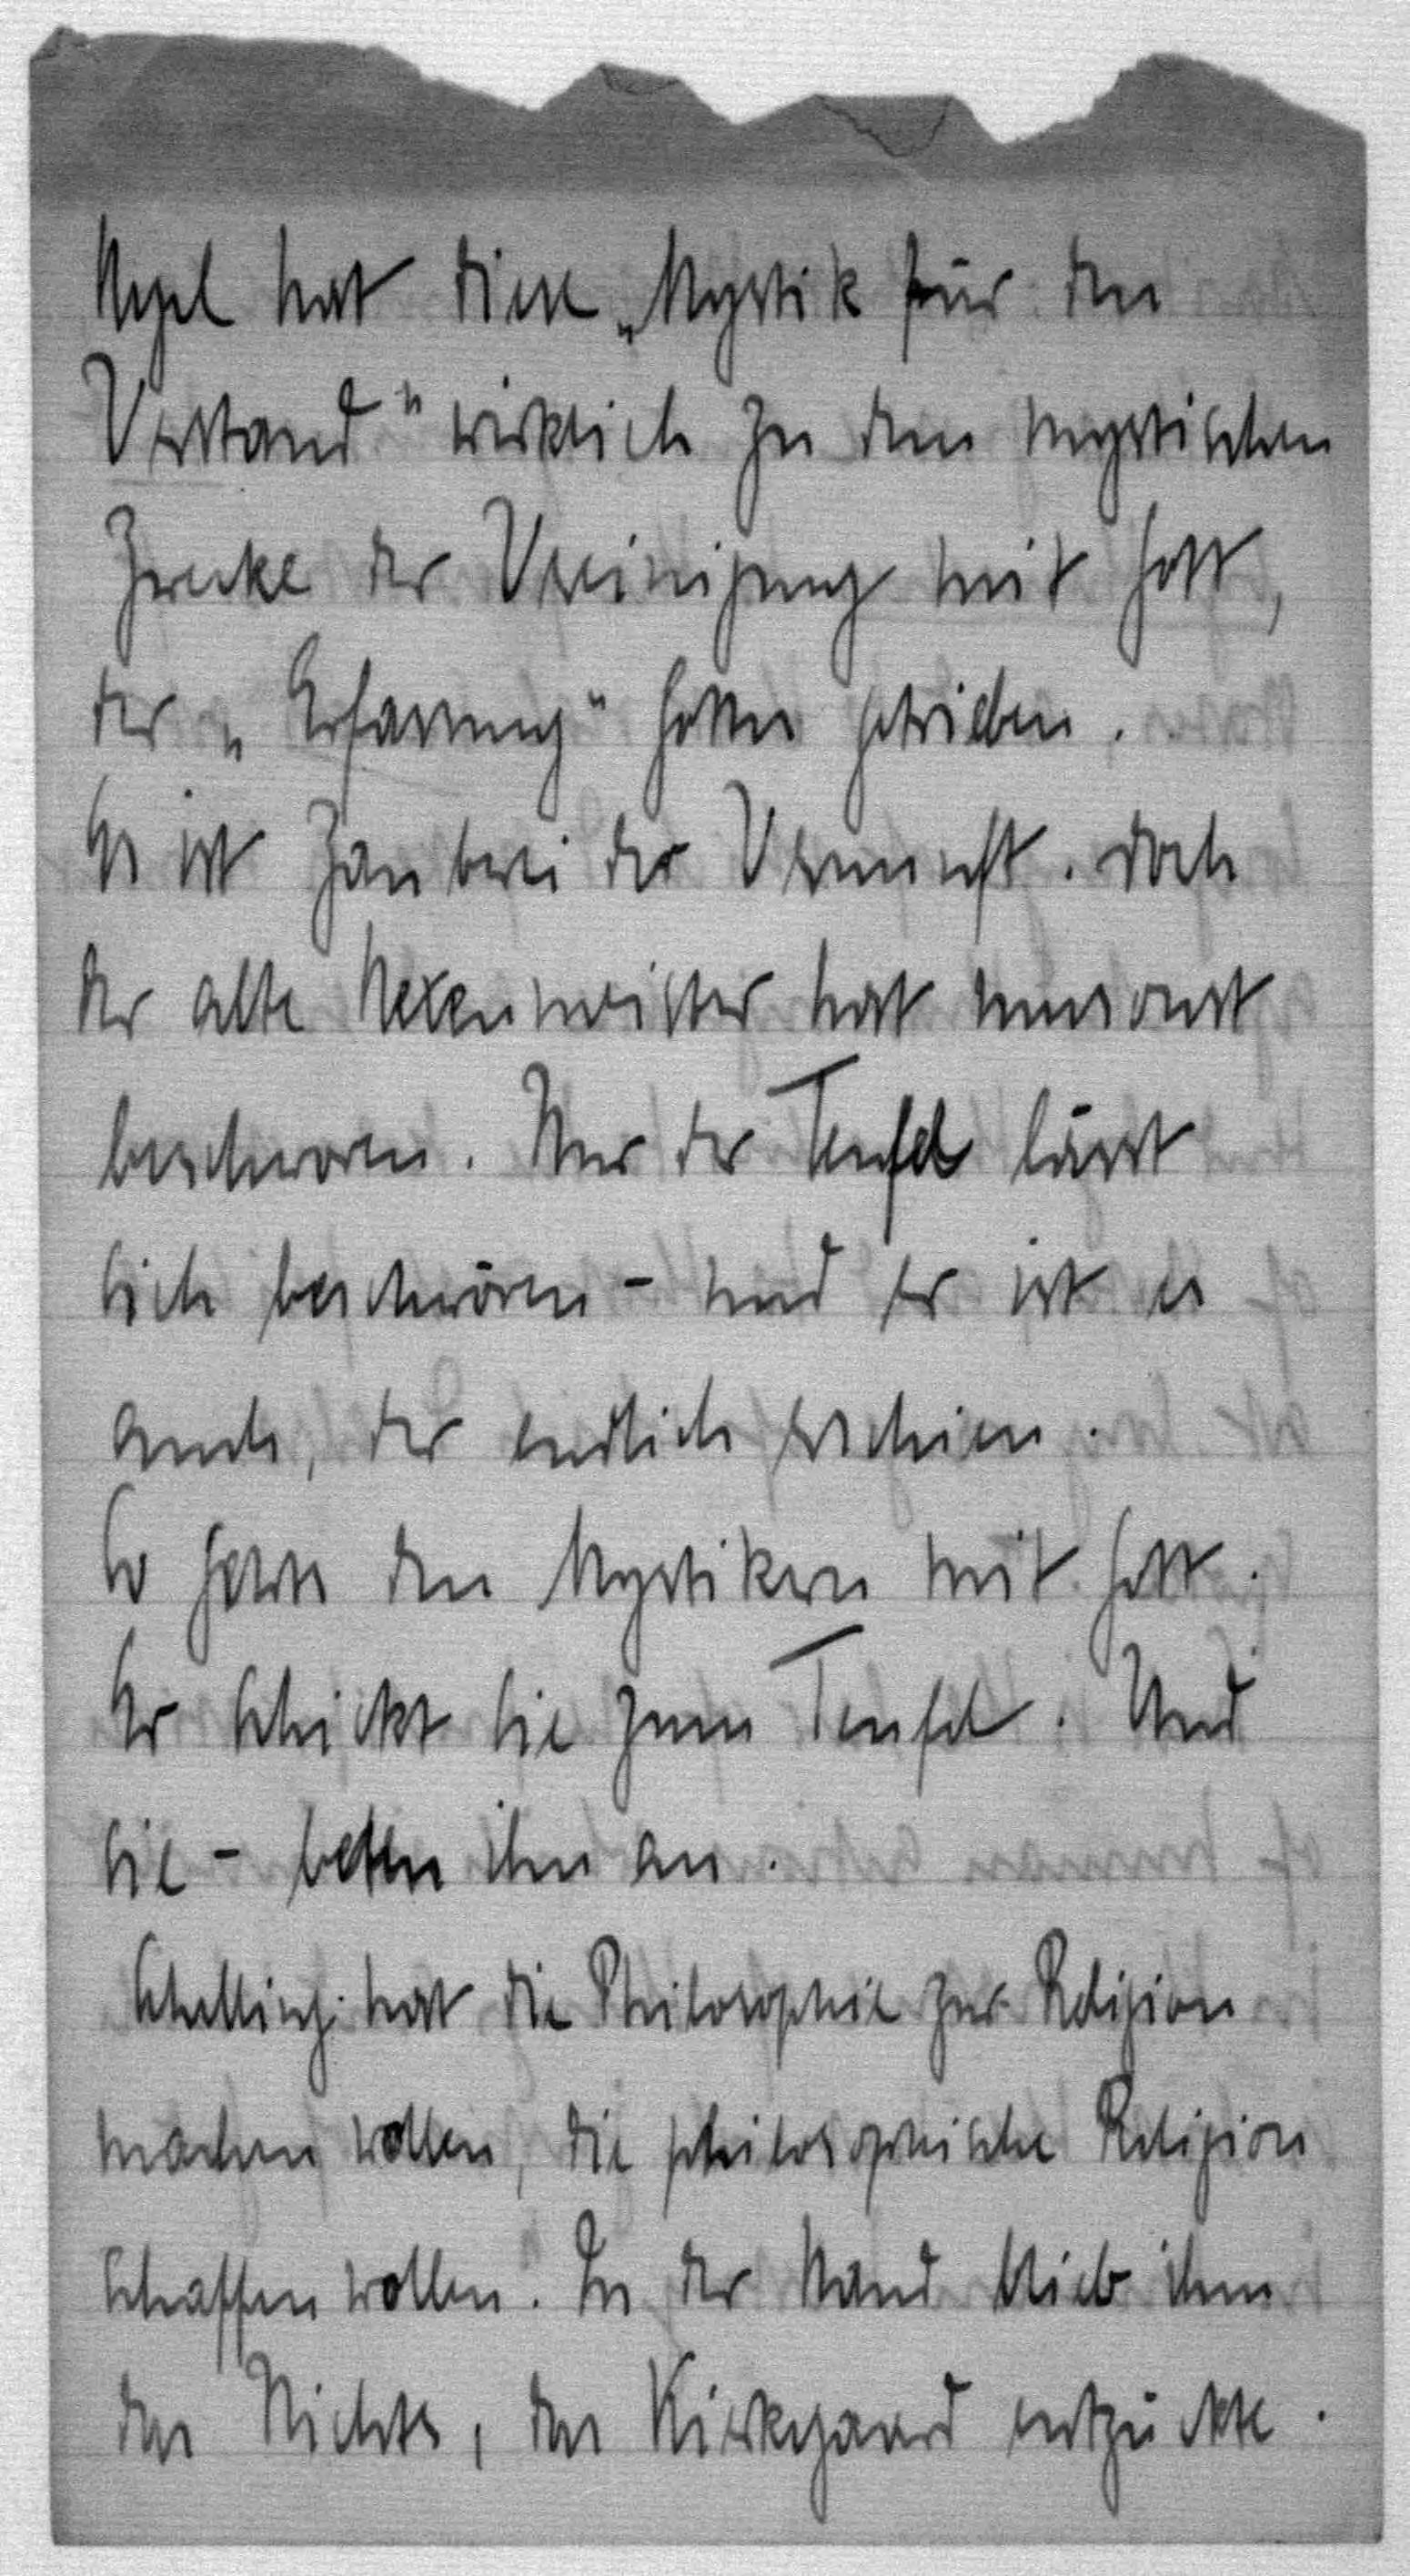 Hegel hat diese „Mystik für den
Verstand" wirklich zu dem mystischen
Zwecke der Vereinigung mit Gott,
der „Erfassung" Gottes getrieben.
Es ist Zauberei der Vernunft. Doch
der alte Hexenmeister hat umsonst
beschworen. Nur der Teufel lässt
sich beschwören – und er ist es
auch, der endlich erschien.
So gehts den Mystikern mit Gott.
Er schickt sie zum Teufel. Und
sie – beten ihn an.
Schelling hat die Philosophie zur Religion
machen wollen, die philosophische Religion
schaffen wollen. In der Hand blieb ihm
das Nichts, das Kierkegaard entzückte.